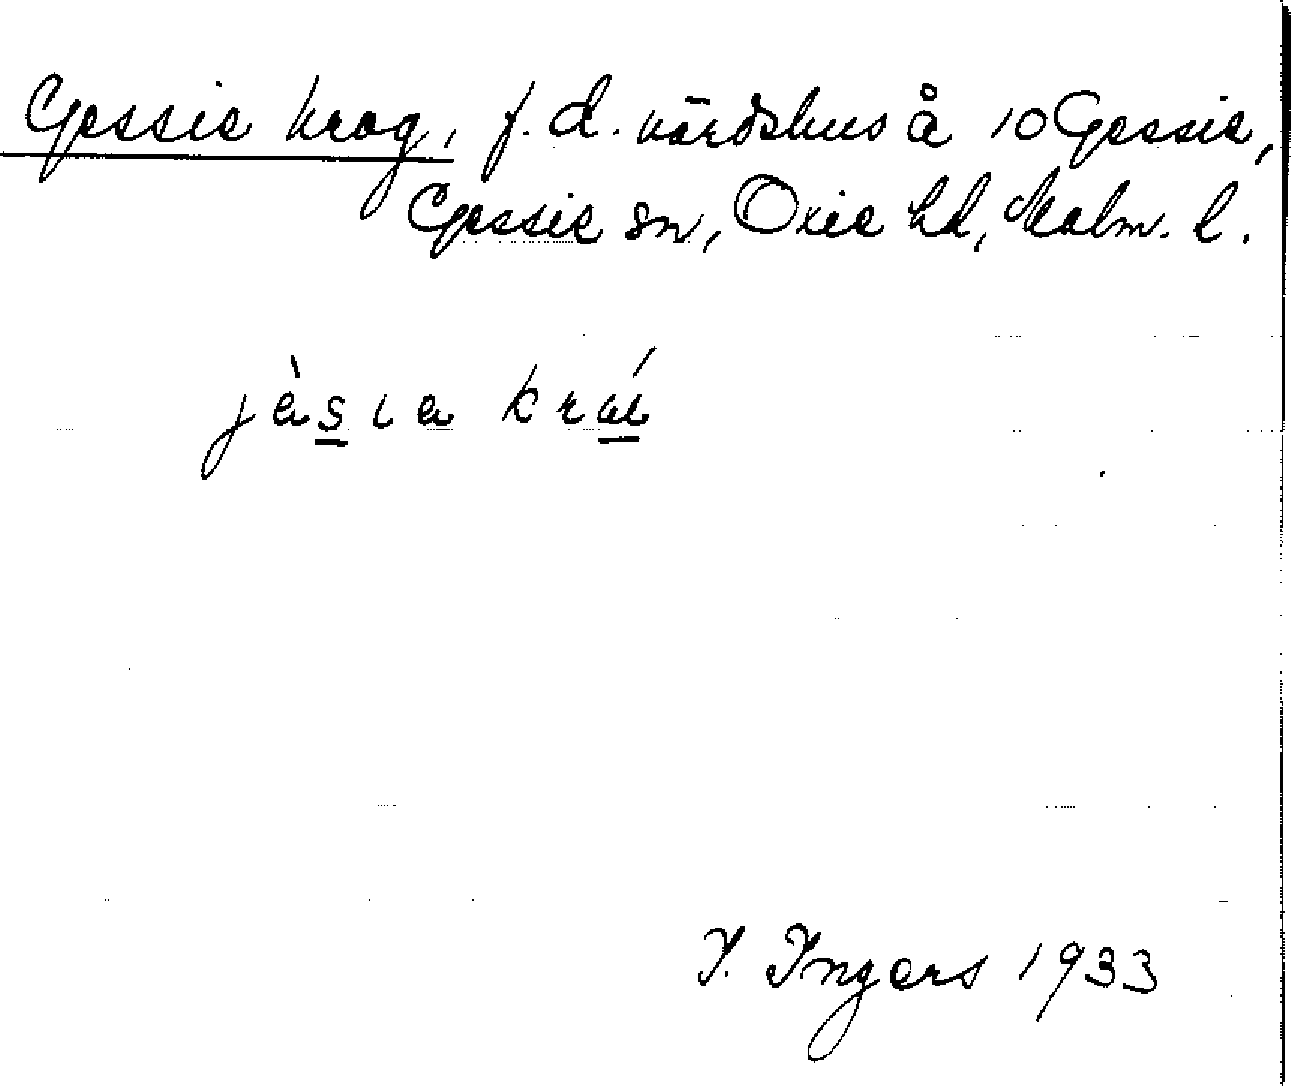 Gessie krog, f.d. värdshus å 10 Gessie,
Gessie sn, Oxie hd, Malm. l.
jàsıa kráı
I. Ingers 1933